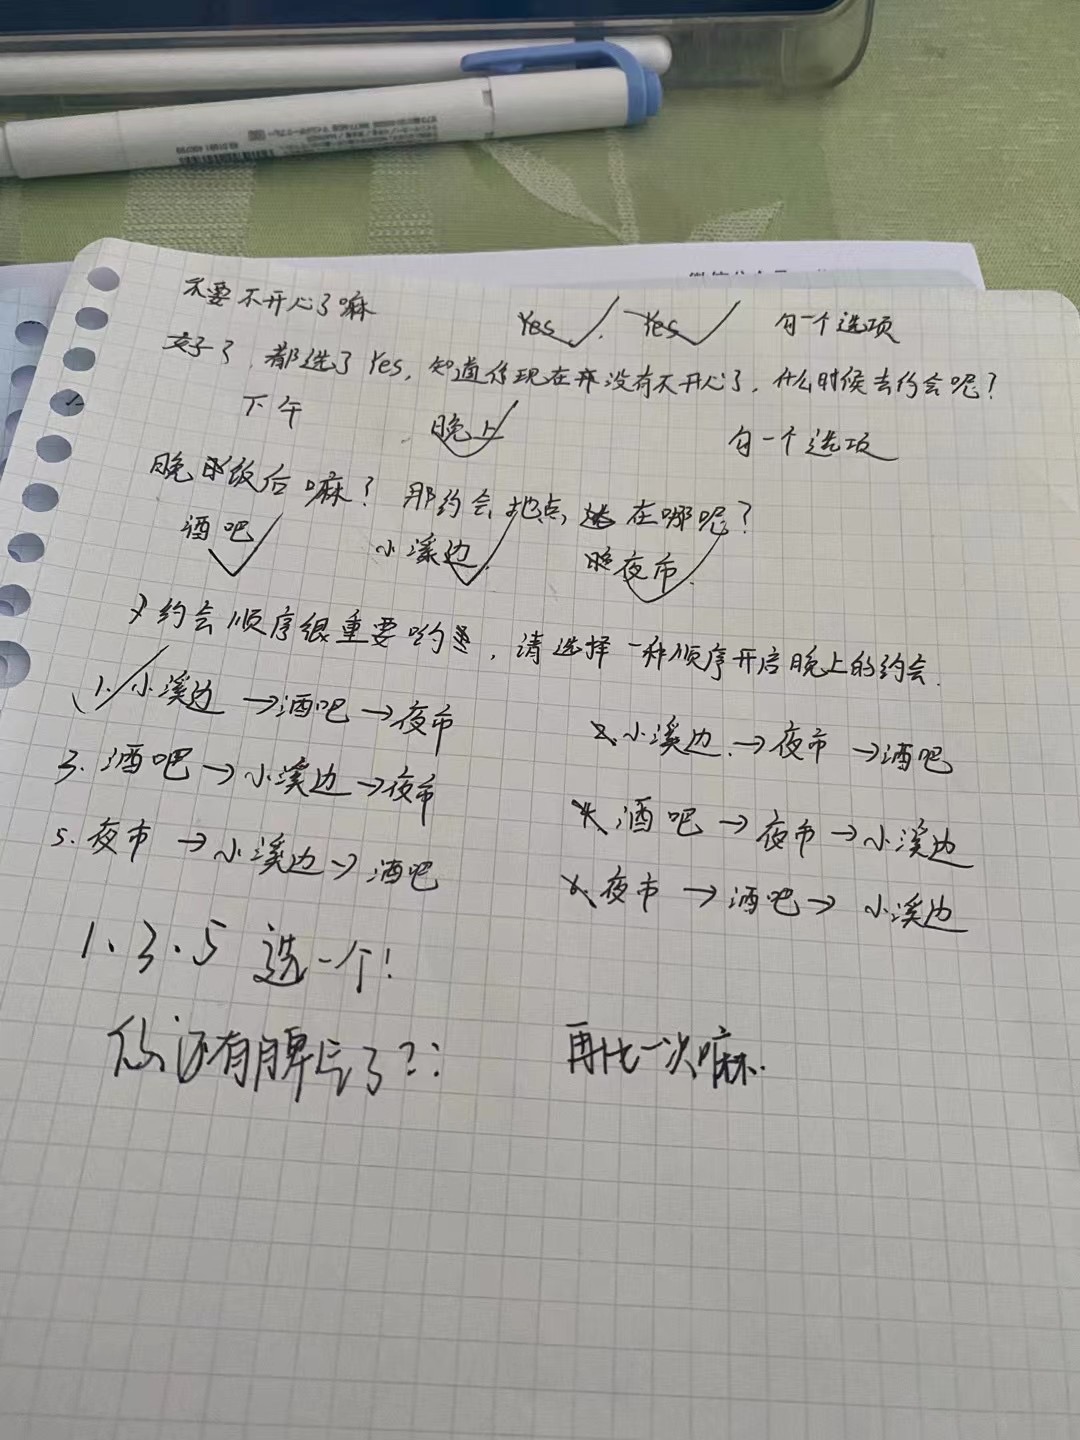 不要不开心了嘛
Yes. Yes 勾一个选项
好了，都选了Yes，知道你现在没有不开心了，什么时候去约会呢？
下午 晚上 勾一个选项
晚饭后嘛？那约会地点在哪呢？
酒吧 小溪边 夜市
约会顺序很重要哟，请选择一种顺序开启晚上的约会.
1. 小溪边→酒吧→夜市 2. 小溪边→夜市→酒吧
3. 酒吧→小溪边→夜市 4. 酒吧→夜市→小溪边
5. 夜市→小溪边→酒吧 6. 夜市→酒吧→小溪边
1、3、5 选一个！
你还有脾气了？：
再比一次嘛.